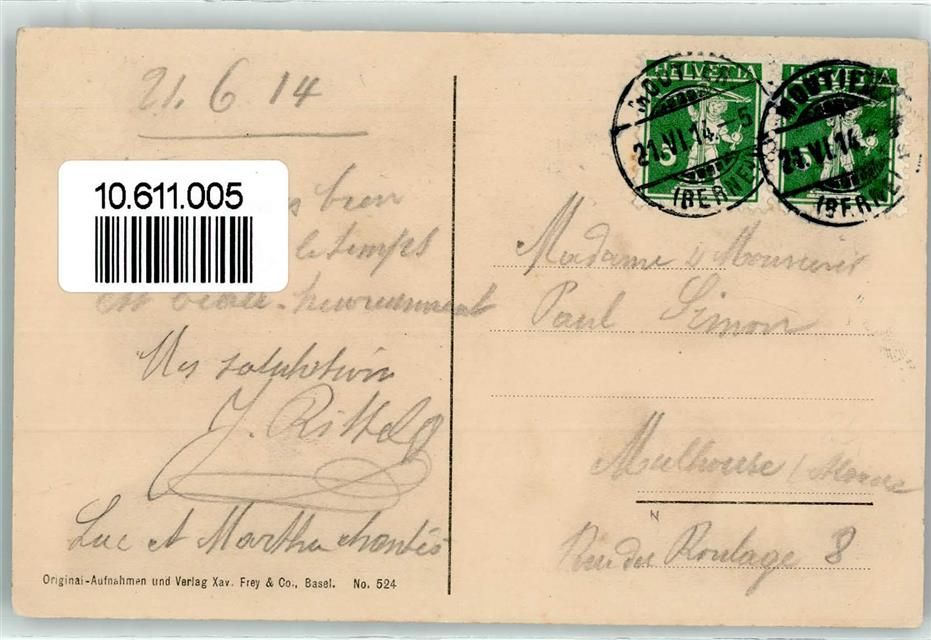 21.6.14
10.611.005
bien
le temps
est heureusement
Mes salutation
J.
Luc et Martha
Original-Aufnahmen und Verlag Xav. Frey & Co., Basel. No. 524
HELVETIA HELVETIA
MOUTIER MOUTIER
21.VI.14.-5 21.VI.14
(BERNE) (BERNE)
5 5
Madame & Monsieur
Paul Simon
Mulhouse
Rue du Roulage 8